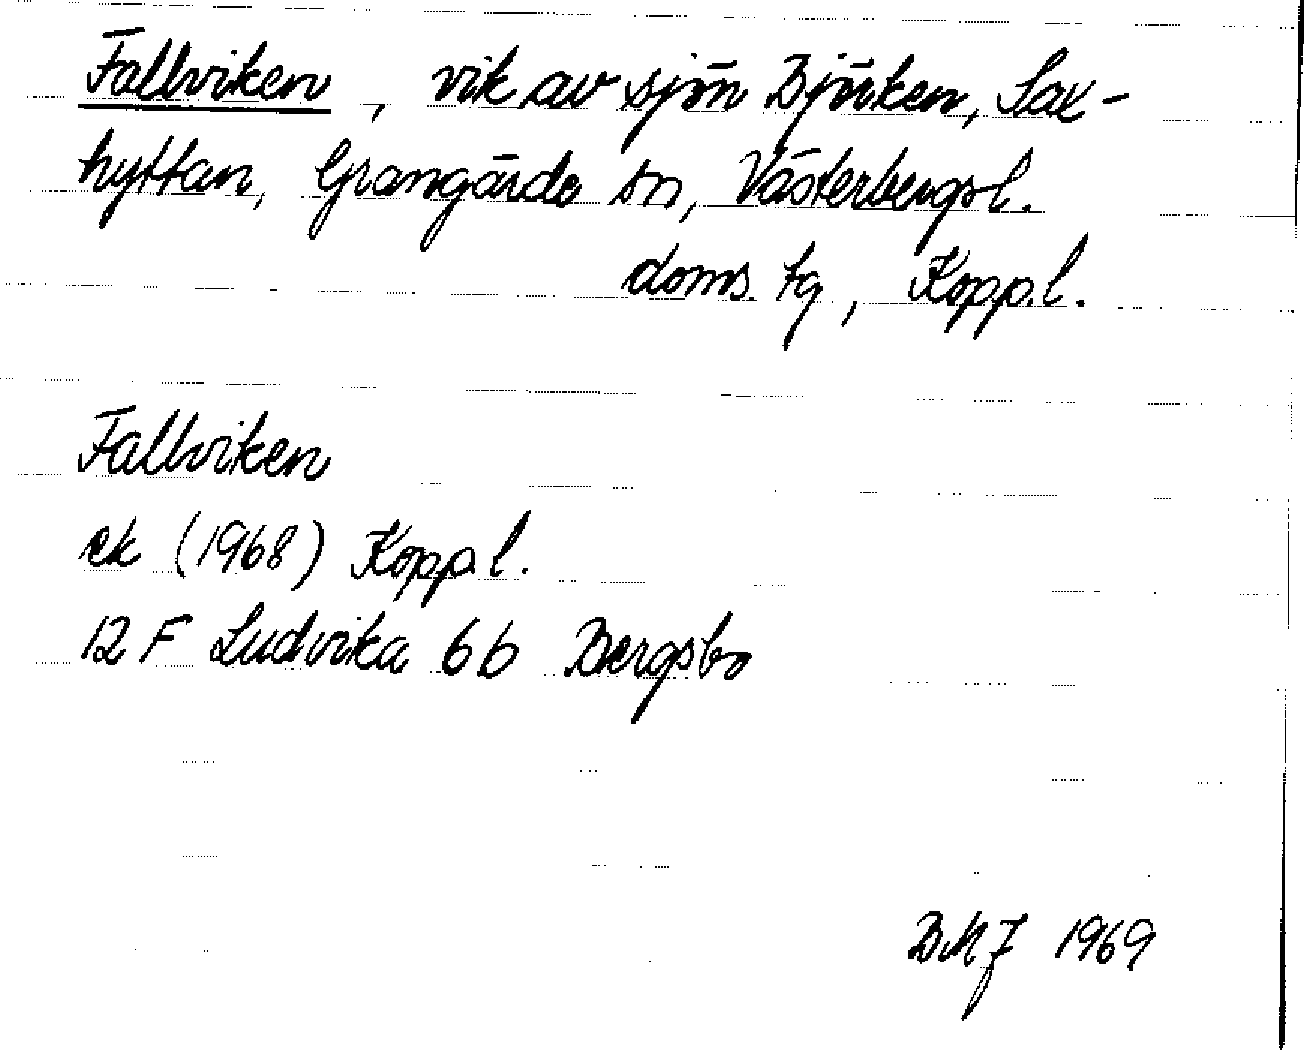 Fallviken, vik av sjön Björken, Sax-
hyttan, Grangärde sn, Västerbergsl.
doms. tg, Kopp.l.
Fallviken
ek (1968) Kopp.l.
12 F Ludvika 6b Bergsbo
BMJ 1969